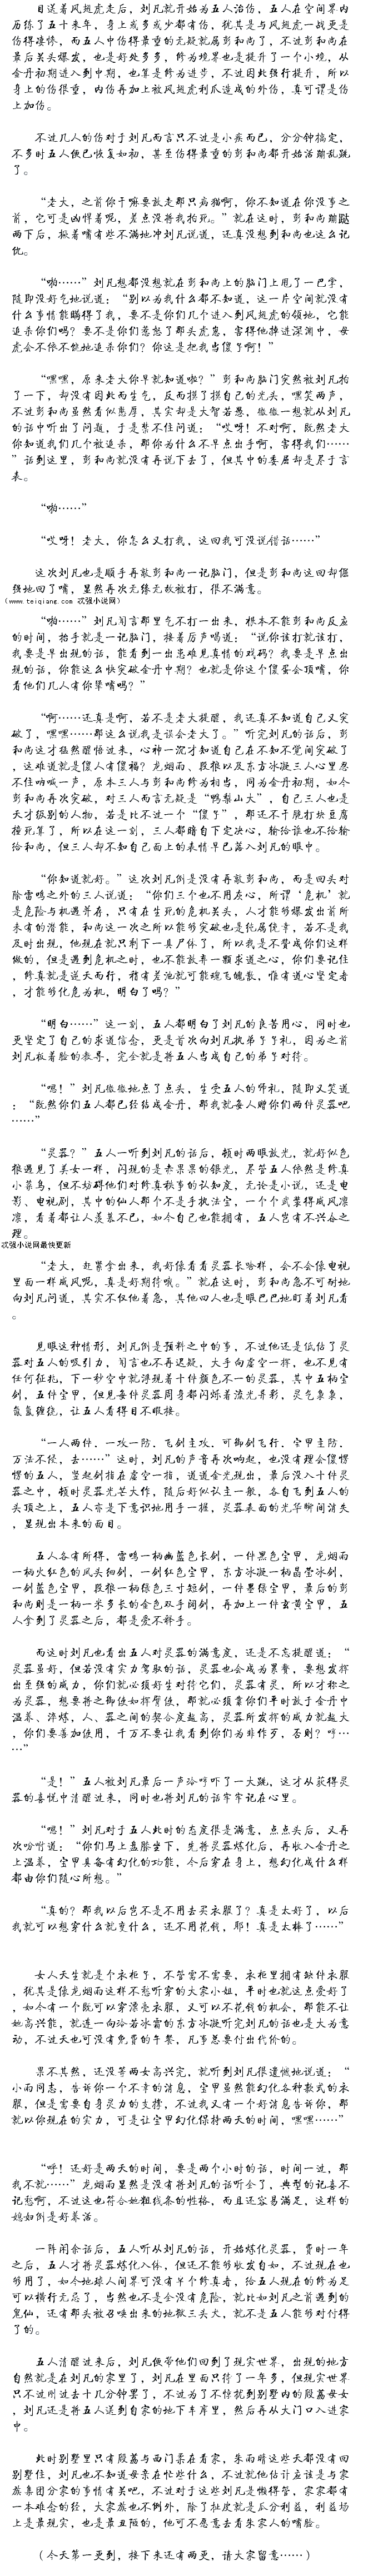 目送着风翅虎走后，刘凡就开始为五人治伤，五人在空间界内
历练了五十来年，身上或多或少都有伤，犹其是与风翅虎一战更是
伤得凄惨，而五人中伤得最重的无疑就属彭和尚了，不过彭和尚在
最后关头爆发，也是好处多多，修为境界也是提升了一个小境，从
金丹初期进入到中期，也算是修为进步，不过因此强行提升，所以
身上的伤很重，内伤再加上被风翅虎利爪造成的外伤，真可谓是伤
上加伤。
不过几人的伤对于刘凡而言只不过是小疾而已，分分钟搞定，
不多时五人便已恢复如初，甚至伤得最重的彭和尚都开始活蹦乱跳
了。
“老大，之前你干嘛要放走那只病猫啊，你不知道在你没来之
前，它可是凶悍着呢，差点没将我拍死。”就在这时，彭和尚蹦跶
两下后，揪着嘴有些不满地冲刘凡说道，还真没想到和尚也这么记
仇。
“啪……”刘凡想都没想就在彭和尚上的脑门上甩了一巴掌，
随即没好气地说道：“别以为我什么都不知道，这一片空间就没有
什么事情能瞒得了我，要不是你们几个进入到风翅虎的领地，它能
追杀你们吗？要不是你们惹怒了那头虎崽，害得他掉进深渊中，母
虎会不依不饶地追杀你们？你这是把我当傻子啊！”
“嘿嘿，原来老大你早就知道啦？”彭和尚脑门突然被刘凡拍
了一下，却没有因此而生气，反而摸了摸自己的光头，嘿笑两声，
不过彭和尚虽然看似憨厚，其实却是大智若愚，微微一想就从刘凡
的话中听出了问题，于是禁不住问道：“哎呀！不对啊，既然老大
你知道我们几个被追杀，那你为什么不早点出手啊，害得我们……”
话到这里，彭和尚就没有再说下去了，但其中的委屈却是尽于言
表。
“啪……”
“哎呀！老大，你怎么又打我，这回我可没说错话……”
这次刘凡也是顺手再敲彭和尚一记脑门，但是彭和尚这回却倔
强地回了嘴，显然再次无缘无故被打，很不满意。
（www.teiqiang.com 次强小说网）
“啪……”刘凡闻言那里气不打一出来，根本不能彭和尚反应
的时间，抬手就是一记脑门，接着厉声喝道：“说你该打就该打，
我要是早出现的话，能看到一出患难见真情的戏码？我要是早点出
现的话，你能这么快突破金丹中期？也就是你这个傻蛋会顶嘴，你
看他们几人有你犟嘴吗？”
“啊……还真是啊，若不是老大提醒，我还真不知道自己又突
破了，嘿嘿……那这么说我是误会老大了。”听完刘凡的话后，彭
和尚这才猛然醒悟过来，心神一沉才知道自己在不知不觉间突破了
，这难道就是傻人有傻福？龙烟雨、段狼以及东方冰凝三人心里忍
不住呐喊一声，原本三人与彭和尚修为相当，同为金丹初期，如今
彭和尚再次突破，对三人而言无疑是“鸭梨山大”，自己三人也是
天才级别的人物，若是比不过一个“傻子”，那还不干脆打块豆腐
撞死算了，所以在这一刻，三人都暗自下定决心，输给谁也不给输
给和尚，但三人却不知自己面上的表情早已落入刘凡的眼中。
“你知道就好。”这次刘凡倒是没有再敲彭和尚，而是回头对
除雷鸣之外的三人说道：“你们三个也不用灰心，所谓‘危机’就
是危险与机遇并存，只有在生死的危机关头，人才能够爆发出前所
未有的潜能，和尚这一次之所以能够突破也是纯属侥幸，若不是我
及时出现，他现在就只剩下一具尸体了，所以我是不赞成你们这样
做的，但是遇到危机之时，也不能放弃一颗求道之心，你们要记住
，修真就是逆天而行，稍有差池就可能魂飞魄散，惟有道心坚定者
，才能够化危为机，明白了吗？”
“明白……”这一刻，五人都明白了刘凡的良苦用心，同时也
更坚定了自己的求道信念，更是首次向刘凡执弟子礼，因为之前
刘凡板着脸的教导，完全就是将五人当成自己的弟子对待。
“嗯！”刘凡微微地点了点头，生受五人的师礼，随即又笑道
：“既然你们五人都已经结成金丹，那我就每人赠你们两件灵器吧
……”
“灵器？”五人一听到刘凡的话后，顿时两眼放光，就好似色
狼遇见了美女一样，闪现的是赤果果的银光，尽管五人依然是修真
小菜鸟，但不妨碍他们对修真轶事的认知度，无论是小说，还是电
影、电视剧，其中的仙人那个不是手执法宝，一个个武装得威风凛
凛，看着都让人羡慕不已，如今自己也能拥有，五人岂有不兴奋之
理。
次强小说网最快更新
“老大，赶紧拿出来，我好像看看灵器长啥样，会不会像电视
里面一样威风呢，真是好期待哦。”就在这时，彭和尚急不可耐地
向刘凡问道，其实不仅他着急，其他四人也是眼巴巴地盯着刘凡看
。
见眼这种情形，刘凡倒是预料之中的事，不过他还是低估了灵
器对五人的吸引力，闻言也不再迟疑，大手向虚空一挥，也不见有
任何征兆，下一秒空中就浮现着十件颜色不一的灵器，其中五柄宝
剑，五件宝甲，但见每件灵器周身都闪烁着流光异彩，灵气袅袅，
氤氲缭绕，让五人看得目不暇接。
“一人两件，一攻一防，飞剑主攻，可御剑飞行，宝甲主防，
万法不侵，去……”这时，刘凡的声音再次响起，也没有理会傻愣
愣的五人，竖起剑指在虚空一指，道道金光现出，最后没入十件灵
器之中，顿时灵器光芒大作，随后好似认主一般，各自飞到五人的
头顶之上，五人亦是下意识地用手一握，灵器表面的光华瞬间消失
，呈现出本来的面目。
五人各有所得，雷鸣一柄幽蓝色长剑，一件黑色宝甲，龙烟雨
一柄火红色的凤头细剑，一剑红色宝甲，东方冰凝一柄晶莹冰剑，
一剑蓝色宝甲，段狼一柄绿色三寸短剑，一件墨绿宝甲，最后的彭
和尚则是一柄一米多长的金色双手阔剑，再加上一件玄黄宝甲，五
人拿到了灵器之后，都是爱不释手。
而这时刘凡也看出五人对灵器的满意度，还是不忘提醒道：“
灵器虽好，但若没有实力驾驭的话，灵器也会成为累赘，要想发挥
出至强的威力，你们就必须好生对待它们，灵器有灵，所以才称之
为灵器，想要将之御使如挥臂使，那就必须靠你们平时放于金丹中
温养、淬炼，人、器之间的契合度越高，灵器所发挥的威力就越大
，你们要善加使用，千万不要让我看到你们为非作歹，否则？哼…
…”
“是！”五人被刘凡最后一声冷哼吓了一大跳，这才从获得灵
器的喜悦中清醒过来，同时也将刘凡的话牢牢记在心里。
“嗯！”刘凡对于五人此时的态度很是满意，点点头后，又再
次吩咐道：“你们马上盘膝坐下，先将灵器炼化后，再收入金丹之
上温养，宝甲具备有幻化的功能，今后穿在身上，想幻化成什么样
都由你们随心所想。”
“真的？那我以后岂不是不用去买衣服了？真是太好了，以后
我就可以想穿什么就变什么，还不用花钱，耶！真是太棒了……”
女人天生就是个衣柜子，不管需不需要，衣柜里拥有缺件衣服
，犹其是像龙烟雨这样不愁听穿的大家小姐，平时也就这点爱好了
，如今有一个既可以穿漂亮衣服，又可以不花钱的机会，那能不让
她高兴能，就连一向冷若冰霜的东方冰凝听完刘凡的话也是大为意
动，不过天也可没有免费的午餐，凡事总要付出代价的。
果不其然，还没等两女高兴完，就听到刘凡很遗憾地说道：“
小雨同志，告诉你一个不幸的消息，宝甲虽然能幻化各种款式的衣
服，但是需要自身灵力的支撑，不过我又有一个好消息告诉你，那
就以你现在的实力，可是让宝甲幻化保持两天的时间，嘿嘿……”
“呼！还好是两天的时间，要是两个小时的话，时间一过，那
我不就……”龙烟雨显然是没有将刘凡的话听全了，典型的记喜不
记愁啊，不过这也符合她粗线条的性格，而且还容易满足，这样的
媳妇倒是好养活。
一阵闲余话后，五人听从刘凡的话，开始炼化灵器，费时一年
之后，五人才将灵器炼化入体，但还不能够收发自如，不过现在也
够用了，如今地球人间界可没有单个修真者，给五人现在的修为足
可以横行无忌了，当然也不是会没有危险，就比如刘凡之前遇到的
鬼仙，还有那头被召唤出来的地狱三头犬，就不是五人能够对付得
了的。
五人清醒过来后，刘凡便带他们回到了现实世界，出现的地方
自然就是在刘凡的家里了，刘凡在里面只待了一年多，但现实世界
只不过刚过去十几分钟罢了，不过为了不惊扰到别墅内的殷茗母女
，刘凡还是将五人送到自家的地下车库里，然后再从大门口入进家
中。
此时别墅里只有殷茗与西门柔在看家，朱雨晴这些天都没有回
别墅住，刘凡也不知道母亲在忙些什么，不过就他估计应该是与家
族集团分家的事情有关吧，不过对于这些刘凡是懒得管，家家都有
一本难念的经，大家族也不例外，除了扯皮就是瓜分利益，利益场
上是最现实，也是最丑陋的，他可不愿意去看朱家人的嘴脸。
（今天第一更到，接下来还有两更，请大家留意……）